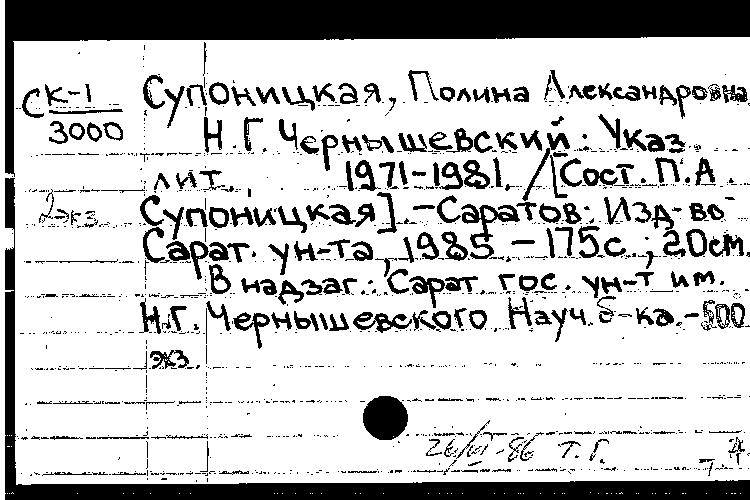 СК-1 Супоницкая, Полина Александровна
3000 Н.Г. Чернышевский: Указ.
лит., 1971-1981. / [Сост. П.А.
2экз Супоницкая]. - Саратов: Изд-во
Сарат. ун-та, 1985. - 175с.; 20см.
В надзаг.: Сарат. гос. ун-т им.
Н.Г. Чернышевского. Науч. б-ка. - 500
экз.
26/VI-86 Т.Г.